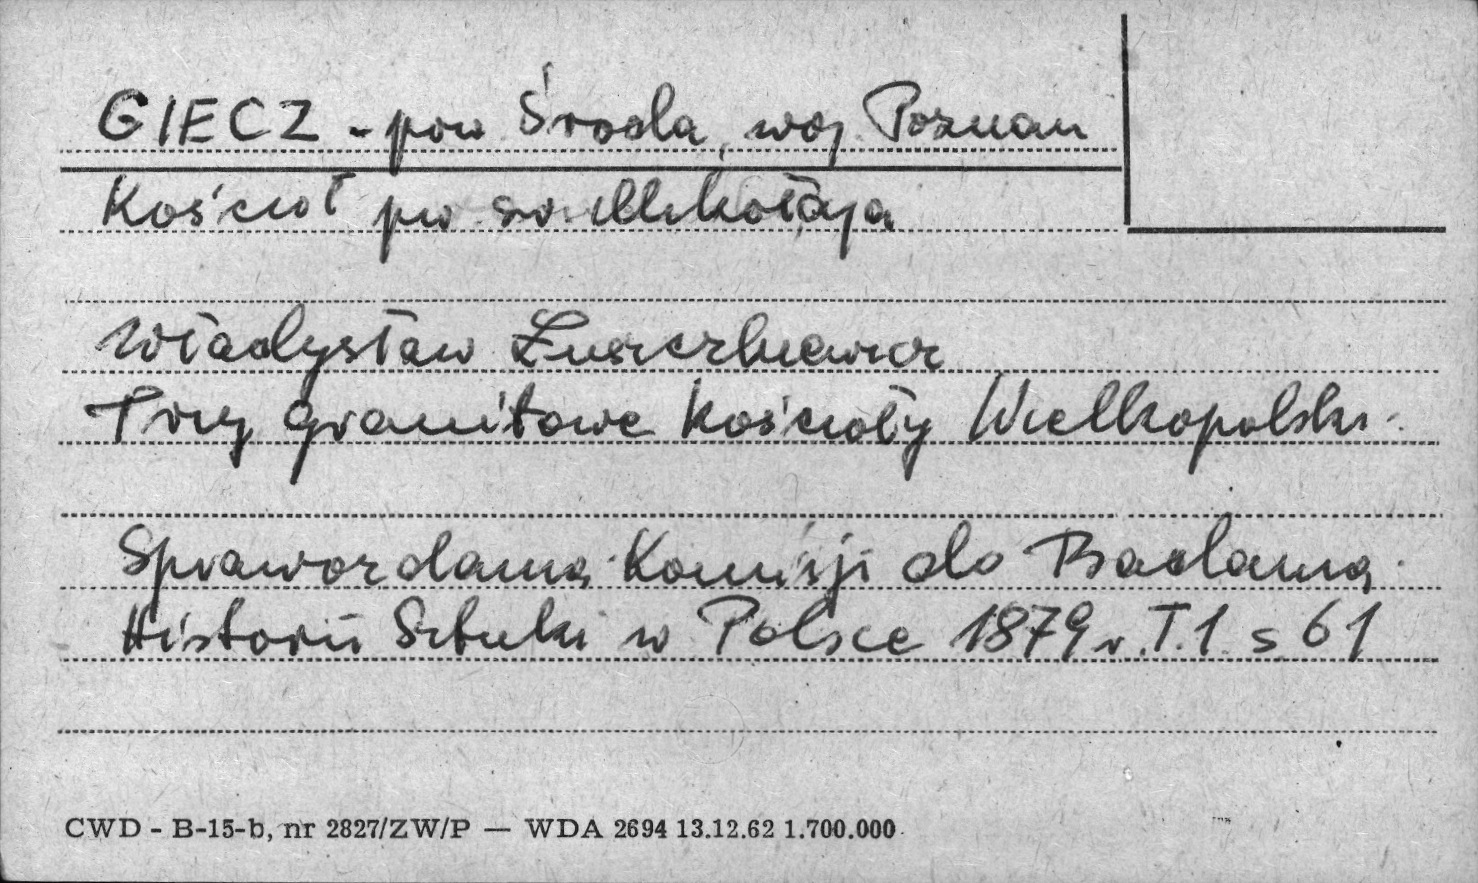 GIECZ - pow Środa, woj Poznań
Kościoł pw sw Mikołaja
Władysław Łuszczkiewicz
Trzy granitowe Kościoły Wielkopolski
Sprawozdania Komisji do Badania
Historii Sztuki w Polsce 1879 r. T.1 s 61
CWD - B-15-b, nr 2827/ZW/P — WDA 2694 13.12.62 1.700.000